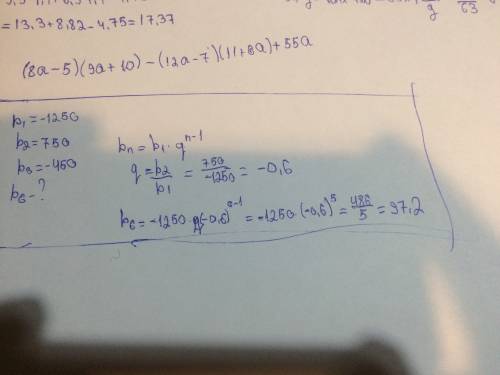 = 13,3 + 8,82 - 4,75 = 17,37
(8a-5)(9a+10)-(12a-7)(11+8a)+55a
b₁=-1250
b₂=750
b₃=-450
b₆-?
bₙ=b₁·qⁿ⁻¹
q=b₂/b₁=750/-1250=-0,6
b₆=-1250·(-0,6)⁶⁻¹=-1250·(-0,6)⁵=486/5=97,2